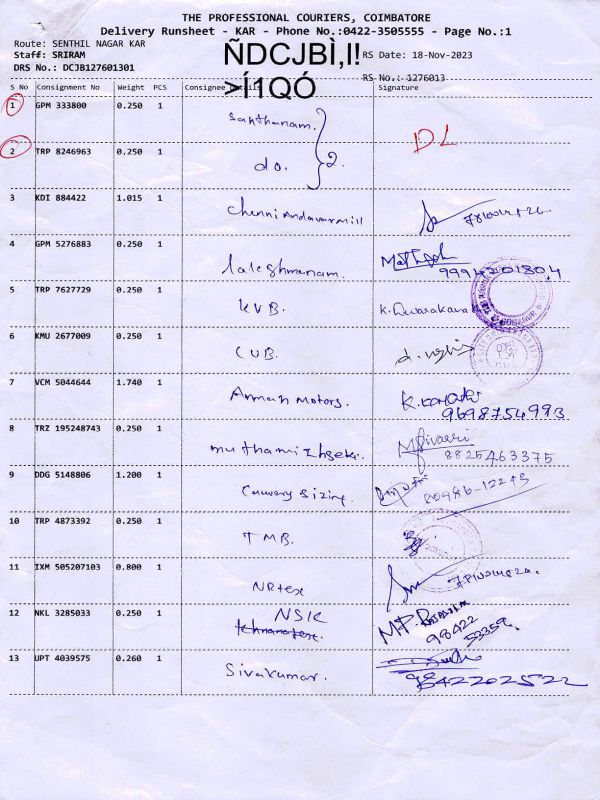 THE PROFESSIONAL COURIERS, COIMBATORE
Delivery Runsheet - KAR - Phone No.:0422-3505555 - Page No.:1
Route: SENTHIL NAGAR KAR
Staff: SRIRAM
DRS No.: DCJB127601301
ÑDCJBÌ,I!
>Í1QÓ
RS Date: 18-Nov-2023
RS No.: 1276013
S No Consignment No Weight PCS Consignee Details Signature
1 GPM 333800 0.250 1 Santhanam.
2 TRP 8246963 0.250 1 do. 2. DL
3 KDI 884422 1.015 1 Chenniandavarmill
4 GPM 5276883 0.250 1 laleghmanam. 9994201804
5 TRP 7627729 0.250 1 KVB. K.Dwarakanath
6 KMU 2677009 0.250 1 CUB.
7 VCM 5044644 1.740 1 Amman Motors. K.Komathi
9698754993
8 TRZ 195248743 0.250 1 8825463375
9 DDG 5148806 1.200 1 Cauvery Sizing. 80986-12213
10 TRP 4873392 0.250 1 TMB.
11 IXM 505207103 0.800 1 NRtex
12 NKL 3285033 0.250 1 NSIC 98422 53359
13 UPT 4039575 0.260 1 Sivakumar. 9842202522